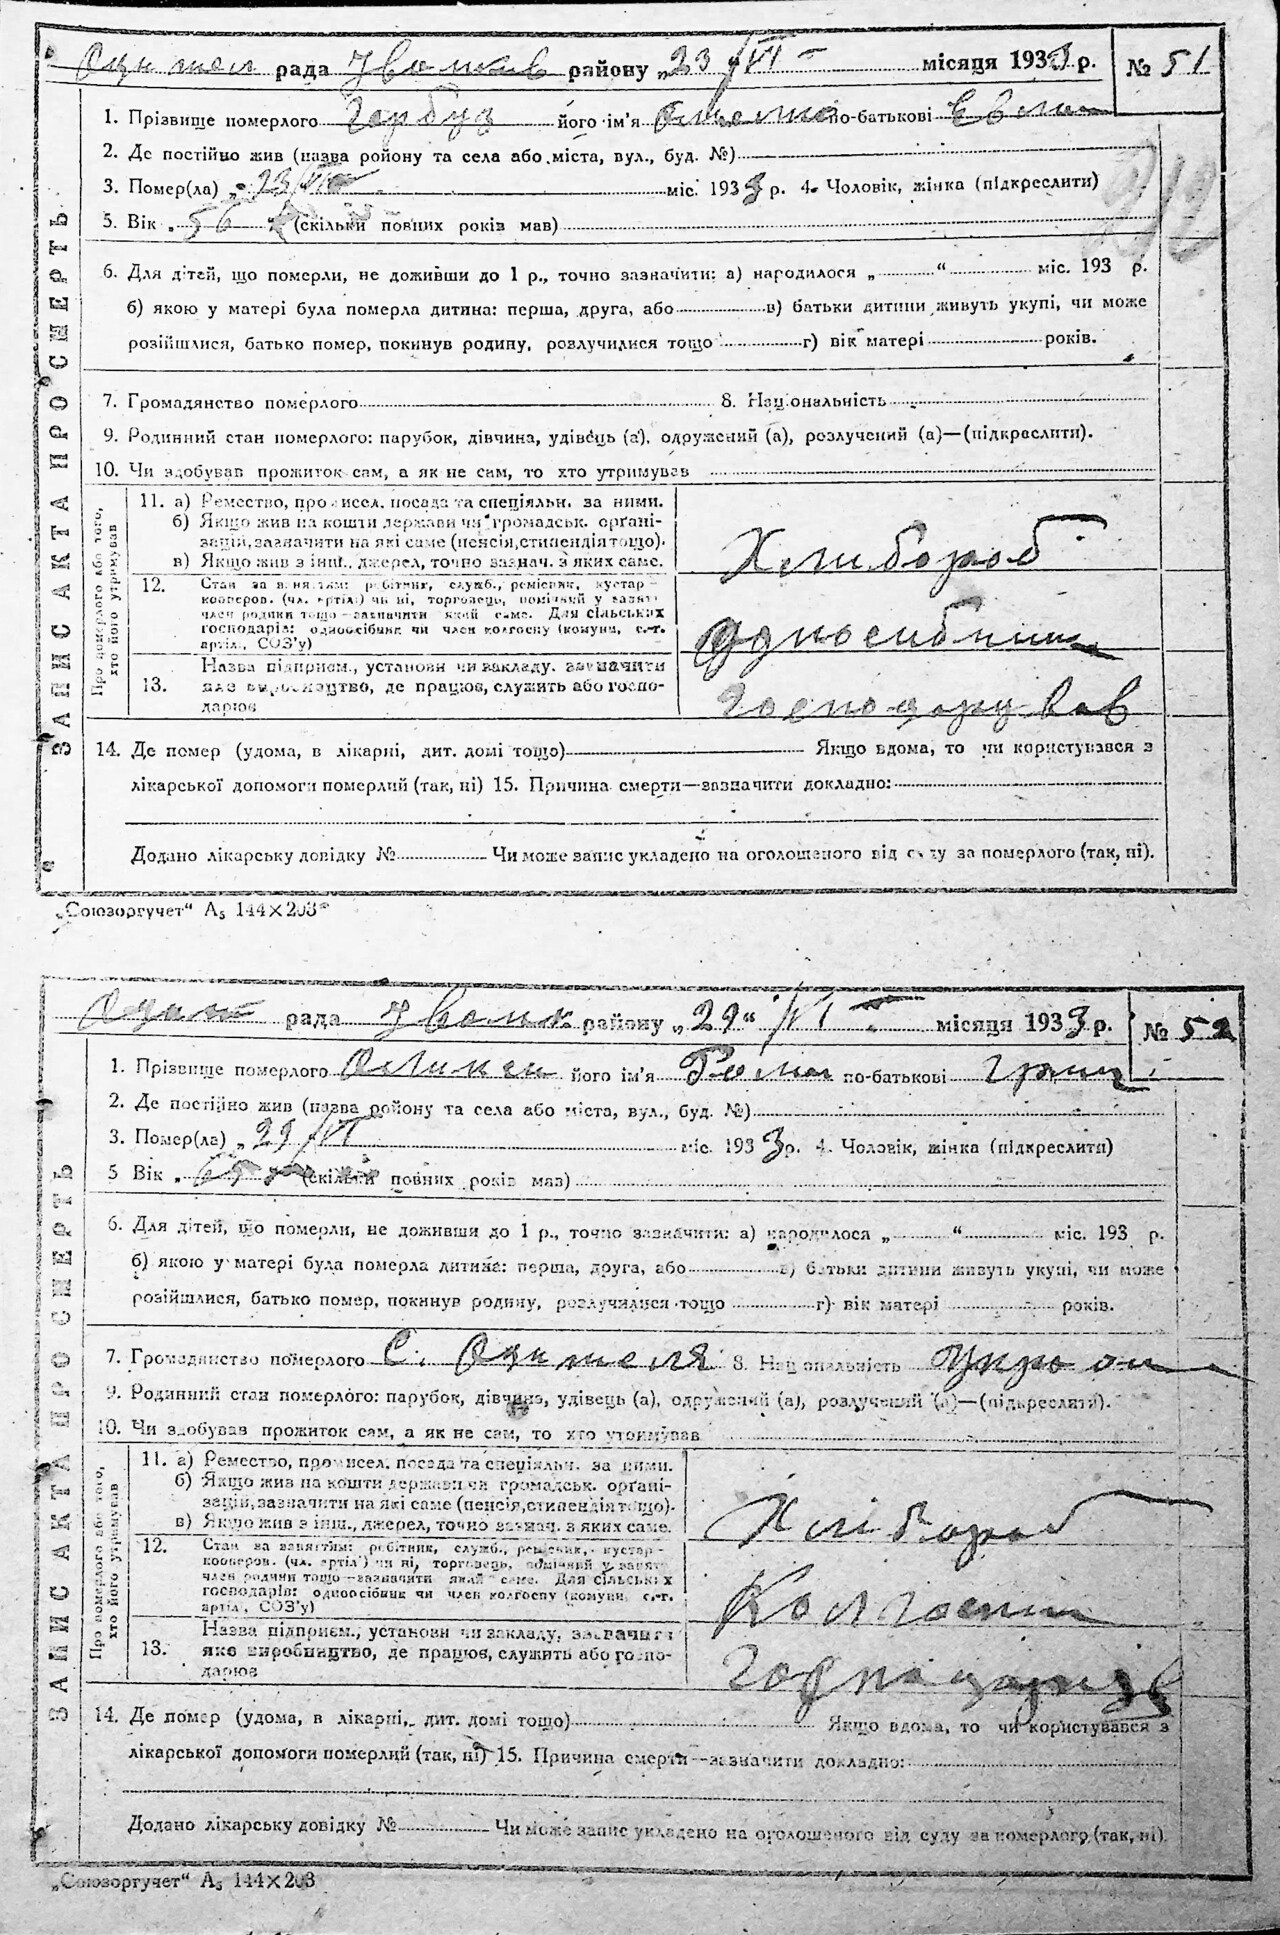 рада району „23 /VI місяця 1933 р. № 51
ЗАПИС АКТА ПРО СМЕРТЬ
1. Прізвище померлого Гарбуз його ім'я по-батькові
2. Де постійно жив (назва ройону та села або міста, вул., буд. №)
3. Помер(ла) „ 23/VI міс. 1933 р. 4. Чоловік, жінка (підкреслити)
5. Вік „ 56 (скільки повних років мав)
6. Для дітей, що померли, не доживши до 1 р., точно зазначити: а) народилося „ “ міс. 193 р.
б) якою у матері була померла дитина: перша, друга, або в) батьки дитини живуть укупі, чи може
розійшлися, батько помер, покинув родину, розлучилися тощо г) вік матері років.
7. Громадянство померлого 8. Національність
9. Родинний стан померлого: парубок, дівчина, удівець (а), одружений (а), розлучений (а)—(підкреслити).
10. Чи здобував прожиток сам, а як не сам, то хто утримував
Про померлого або того, хто його утримував
11. а) Ремество, промисел, посада та спеціяльн. за ними.
б) Якщо жив на кошти держави чи громадськ. орґані-
зацій, зазначити на які саме (пенсія, стипендія тощо).
в) Якщо жив з інш. джерел, точно зазнач. з яких саме.
Хлибороб
12. Стан за заняттям: робітник, служб., ремісник, кустар-
кооперов. (чл. артілі) чи ні, торговець, помічний у занят.
член родини тощо—зазначити який саме. Для сільських
господарів: одноосібник чи член колгоспу (комуни, с.-г.
артіл., СОЗ'у)
одноосибник
13. Назва підприєм., установи чи закладу, зазначити
яке виробництво, де працює, служить або госпо-
дарює
господарував
14. Де помер (удома, в лікарні, дит. домі тощо) Якщо вдома, то чи користувався з
лікарської допомоги померлий (так, ні) 15. Причина смерти—зазначити докладно:
Додано лікарську довідку № Чи може запис укладено на оголошеного від суду за померлого (так, ні).
„Союзоргучет“ А₅ 144×203
рада району „29“ /VI місяця 1933 р. № 52
ЗАПИС АКТА ПРО СМЕРТЬ
1. Прізвище померлого його ім'я Роман по-батькові Гриц
2. Де постійно жив (назва ройону та села або міста, вул., буд. №)
3. Помер(ла) „ 29/VI міс. 1933 р. 4. Чоловік, жінка (підкреслити)
5 Вік „ 65 (скільки повних років мав)
6. Для дітей, що померли, не доживши до 1 р., точно зазначити: а) народилося „ “ міс. 193 р.
б) якою у матері була померла дитина: перша, друга, або в) батьки дитини живуть укупі, чи може
розійшлися, батько помер, покинув родину, розлучилися тощо г) вік матері років.
7. Громадянство померлого С. 8. Національність
9. Родинний стан померлого: парубок, дівчина, удівець (а), одружений (а), розлучений (а)—(підкреслити).
10. Чи здобував прожиток сам, а як не сам, то хто утримував
Про померлого або того, хто його утримував
11. а) Ремество, промисел, посада та спеціяльн. за ними.
б) Якщо жив на кошти держави чи громадськ. орґані-
зацій, зазначити на які саме (пенсія, стипендія тощо).
в) Якщо жив з інш., джерел, точно зазнач. з яких саме.
Хлібороб
12. Стан за заняттям: робітник, служб., ремісник, кустар-
кооперов. (чл. артіл.) чи ні, торговець, помічний у занят.
член родини тощо—зазначити який саме. Для сільських
господарів: одноосібник чи член колгоспу (комуни, с.-г.
артіл., СОЗ'у)
Колгоспник
13. Назва підприєм., установи чи закладу, зазначити
яке виробництво, де працює, служить або госпо-
дарює
14. Де помер (удома, в лікарні, дит. домі тощо) Якщо вдома, то чи користувався з
лікарської допомоги померлий (так, ні) 15. Причина смерти—зазначити докладно:
Додано лікарську довідку № Чи може запис укладено на оголошеного від суду за померлого (так, ні).
„Союзоргучет“ А₅ 144×203